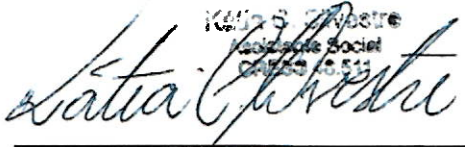 Kátia S. Silvestre
Assistente Social
CRESS 46.511
Kátia Silvestre